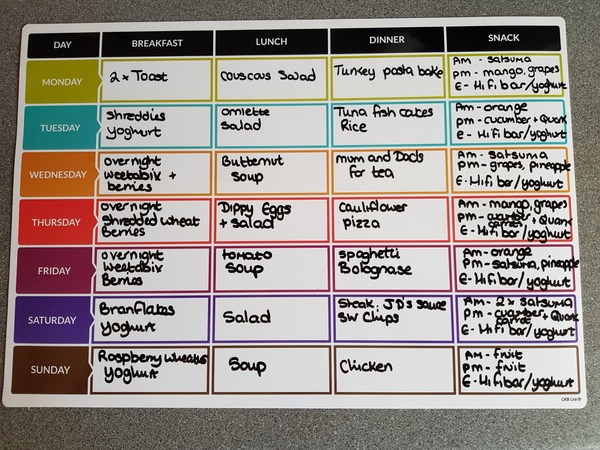 DAY BREAKFAST LUNCH DINNER SNACK
MONDAY
2 x Toast
couscous Salad
Turkey pasta bake
Am - satsuma
pm - mango, grapes
E - Hifi bar/yoghurt
TUESDAY
shreddies
yoghurt
omlette
salad
Tuna fish cakes
Rice
Am - orange
pm - cucumber + Quark
e - Hifi bar/yoghurt
WEDNESDAY
overnight
weetabix +
berries
Butternut
soup
mum and Dads
for tea
Am - satsuma
pm - grapes, pineapple
E - Hifi bar/yoghurt
THURSDAY
overnight
Shredded wheat
Berries
Dippy Eggs
+ salad
Cauliflower
pizza
Am - mango, grapes
pm - + Quark
carrot
E - Hifi bar/yoghurt
FRIDAY
overnight
weetabix
Berries
tomato
Soup
spaghetti
Bolognase
Am - orange
pm - satsuma, pineapple
E - Hifi bar/yoghurt
SATURDAY
Branflakes
yoghurt
Salad
Steak. JD's sauce
SW Chips
Am - 2 x satsuma
pm - cucumber + Quark
carrot
E - Hifi bar/yoghurt
SUNDAY
Raspberry wheaties
yoghurt
Soup
Chicken
Am - fruit
pm - fruit
E - Hifi bar/yoghurt
CKB Ltd ®